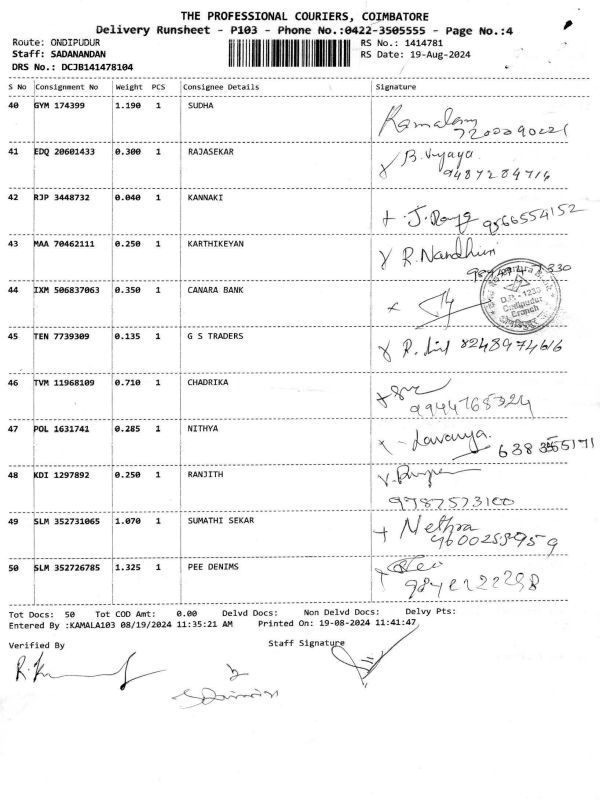 THE PROFESSIONAL COURIERS, COIMBATORE
Delivery Runsheet - P103 - Phone No.:0422-3505555 - Page No.:4
Route: ONDIPUDUR RS No.: 1414781
Staff: SADANANDAN RS Date: 19-Aug-2024
DRS No.: DCJB141478104
S No Consignment No Weight PCS Consignee Details Signature
40 GYM 174399 1.190 1 SUDHA Kamalam
41 EDQ 20601433 0.300 1 RAJASEKAR B. Vijaya
9487284716
42 RJP 3448732 0.040 1 KANNAKI
9566554152
43 MAA 70462111 0.250 1 KARTHIKEYAN R. Nandhini
44 IXM 506837063 0.350 1 CANARA BANK
45 TEN 7739309 0.135 1 G S TRADERS 8248974616
46 TVM 11968109 0.710 1 CHADRIKA
47 POL 1631741 0.285 1 NITHYA Lavanya.
48 KDI 1297892 0.250 1 RANJITH
9787573100
49 SLM 352731065 1.070 1 SUMATHI SEKAR Nethra
50 SLM 352726785 1.325 1 PEE DENIMS
Tot Docs: 50 Tot COD Amt: 0.00 Delvd Docs: Non Delvd Docs: Delvy Pts:
Entered By :KAMALA103 08/19/2024 11:35:21 AM Printed On: 19-08-2024 11:41:47
Verified By Staff Signature